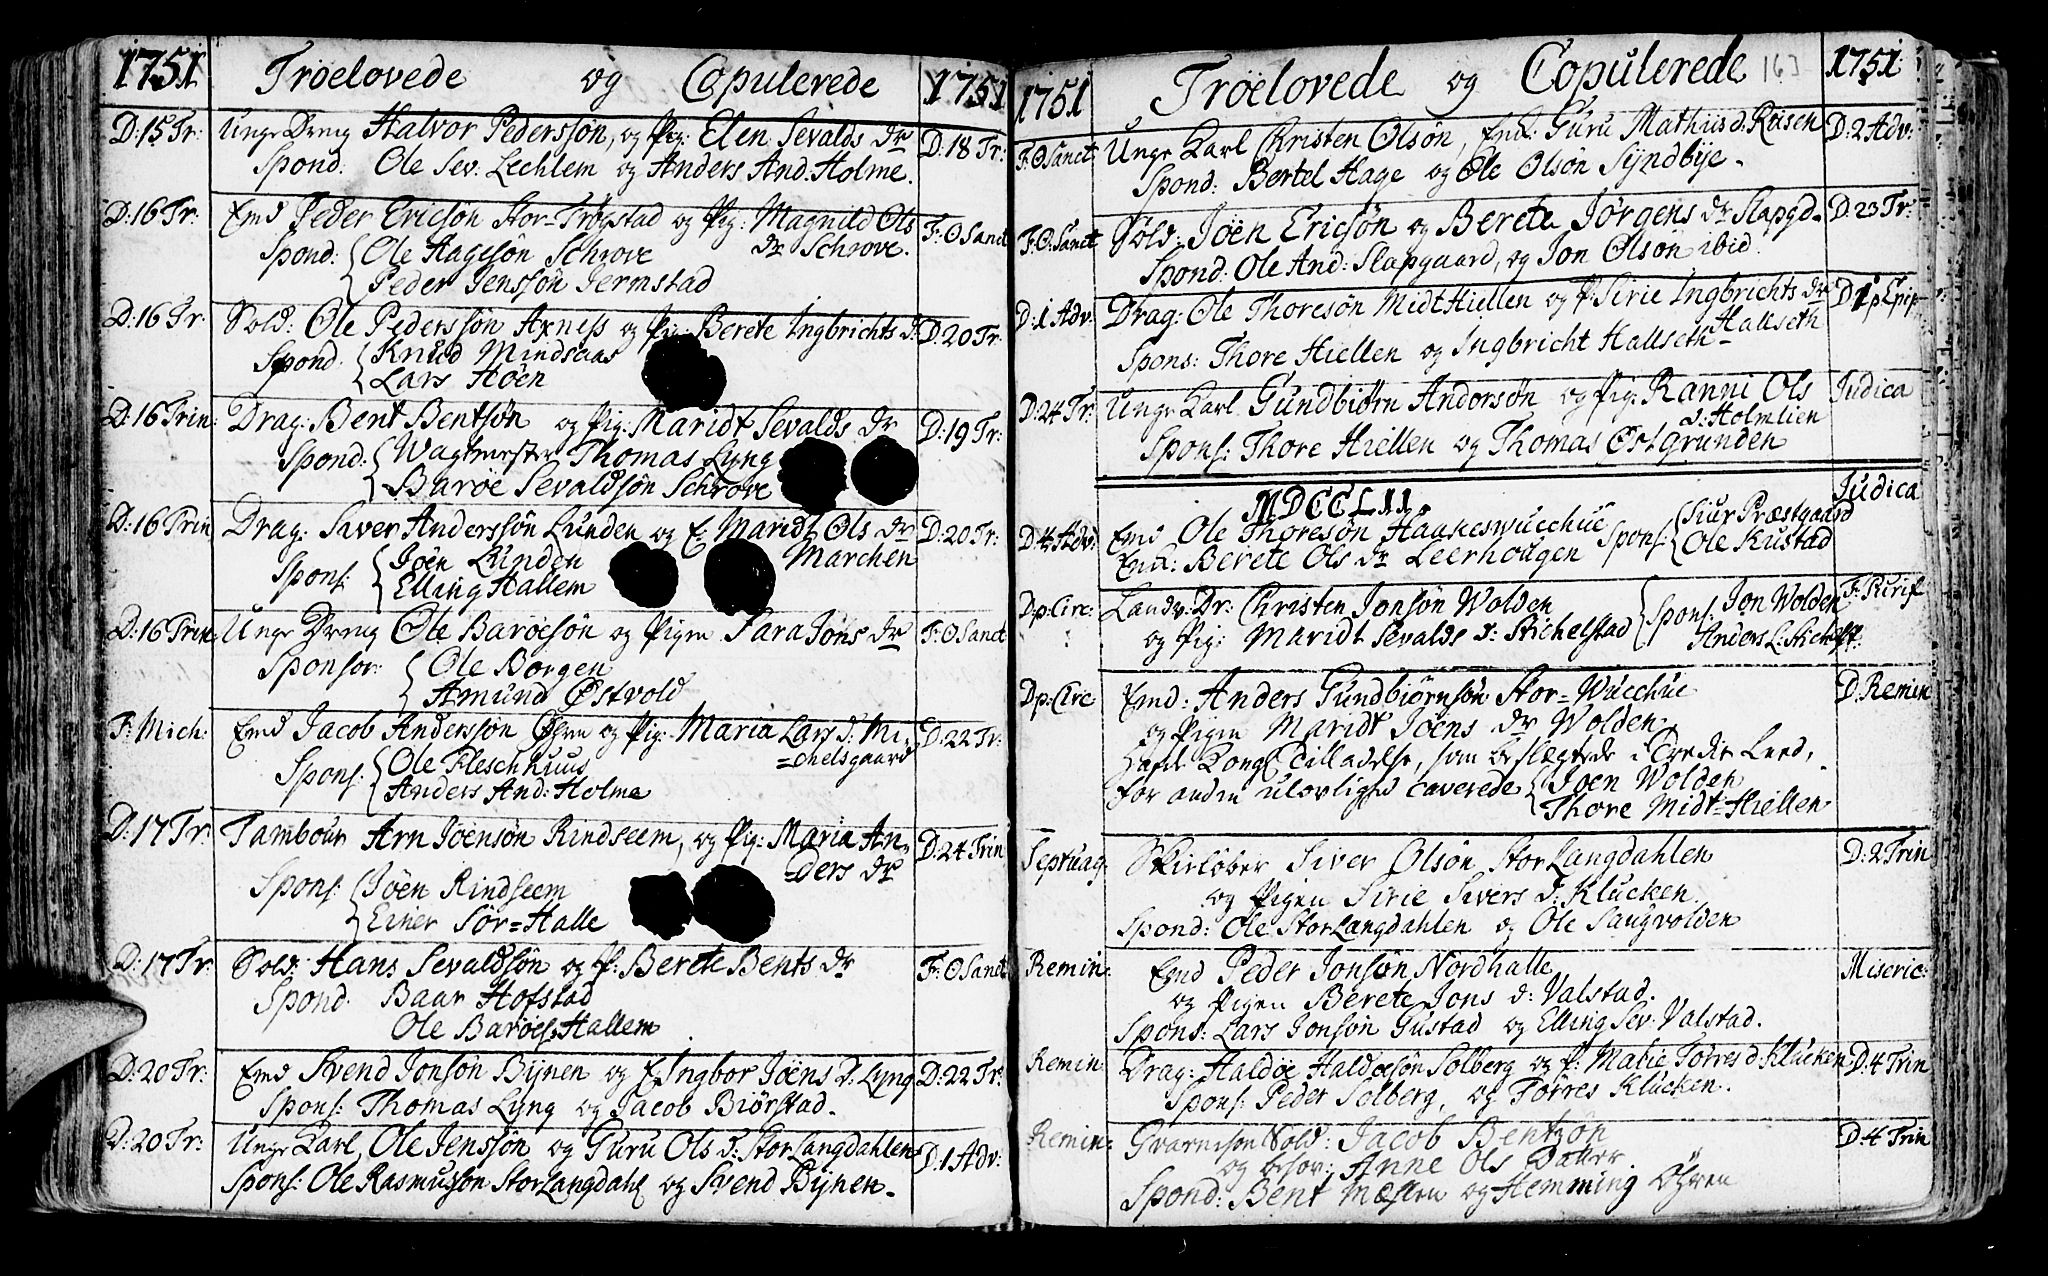 1751 Tröelovede og Copulerede 1751
D: 15 Tr: Unge Dreng Halvor Pederssön, og Pig: Elen Sevalds dr D: 18 Tr:
Spond: Ole Sev: Lechlem og Anders And. Holme.
D: 16 Tr: Emd Peder Ericsön Stor-Trögstad og Pig: Magnild Ols F: O Sanct
Spond: Ole Hagesön Schrove dr Schrove.
Peder Jenssön Jermstad
D: 16 Tr. Sold: Ole Pederssön Axness og Pig: Berete Ingbrichts d: D: 20 Tr.
Spond. Knud Mindsaas
Lars Höen
D: 16 Trin: Drag: Bent Bentsön og Pig: Maridt Sevalds dr D: 19 Tr:
Spond: Wagtmester Thomas Lyng
Baröe Sevaldsön Schrove
D: 16 Trin Drag: Siver Anderssön Lunden og E: Maridt Ols dr D: 20 Tr:
Spons: Jöen Lunden Marchen
Elling Hallem
D: 16 Trin: Unge Dreng Ole Baröesön og Pigen Sara Jöns dr F: O Sanct
Sponsor: Ole Borgen
Amund Østvold
F: Mich: Emd Jacob Anderssön Öhren og Pig: Maria Lars d: Mi D: 22 Tr:
Spons: Ole Fleschhuus =chelsgaard
Anders And: Holme
D: 17 Tr: Tambour Arn Jöensön Rindseem, og Pig: Maria An D: 24 Trin
=ders dr
Spons: Jöen Rindseem
Einer Sör=Halle
D: 17 Tr: Sold: Hans Sevaldsön og P: Berete Bents dr F: O Sanct
Spond. Baar Hofstad
Ole Baröes: Hallem
D: 20 Tr: Emd Svend Jonsön Bÿnen og E: Ingbor Jöens D. Lyng D: 22 Tr:
Spons: Thomas Lyng og Jacob Biörstad.
D: 20 Tr: Unge Karl, Ole Jenssön og Guru Ols d: Stor Langdahlen D: 1 Adv:
Spons: Ole Rasmussön Stor Langdahl og Svend Bÿnen.
1751 Tröelovede og Copulerede 163 1751
F: O Sanct Unge Karl Christen Olsön, Enk: Guru Mathiis d. Röisen D: 2 Adv:
Spond: Bertel Hage og Ole Olsön Sÿndbÿe.
F: O: Sanct Sold: Jöen Ericsön og Berete Jörgens dr Slapgd. D: 23 Tr:
Spond: Ole And: Slapgaard, og Jon Olsön ibid.
D: 1 Adv. Drag: Ole Thoresön Midt Hiellen og P: Sirie Ingbrichts dr D: 1 p Epip
Hallseth
Spons: Thore Hiellen og Ingbricht Hallseth
D: 24 Tr: Unge Karl Gundbiörn Andorsön og Pig: Ranni Ols Judica
d: Holmlien
Spons: Thore Hiellen og Thomas Östgrunden
MDCCLII.
D: 4 Adv: Emd Ole Thoresön Haakeswucchue Spons: Siur Præstgaard Judica
Enk: Berete Ols dr Leerhougen Ole Kustad
D p: Circ: Landv: Dr: Christen Jonsön Wolden Spons: Jon Wolden F: Purif
og Pig: Maridt Sevalds d: Stichelstad Anders L: Stichelst:
D p: Circ Emd: Anders Gundbiörnsön Stor=Wucchue D: Remin
og Pigen Maridt Jöens dr Wolden.
Hafd Kongl Tilladelse, som beslægtede i Tredie Leed,
for anden ulovlighed caverede Joen Wolden
Thore Midt=Hiellen
Septuag: Skirlöber Siver Olsön Stor Langdahlen D: 2 Trin
og Pigen Sirie Sivers d: Klucken
Spond: Ole Stor Langdahlen og Ole Saugvolden
Remin: Emd Peder Jonsön Nordhalle Miseric:
og Pigen Berete Jons d: Valstad.
Spons: Lars Jonsön Gustad og Elling Sev: Valstad.
Remin: Drag: Haldöe Haldoesön Solberg og P: Malie Torres d: Klucken D: 4 Trin
Spons: Peder Solberg, og Torres Klucken.
Remin: Gvarnison Sold: Jacob Bentzön D: 4 Trin
og besov: Anne Ols Datter
Spond: Bent Mæhlen og Hemming Öhren